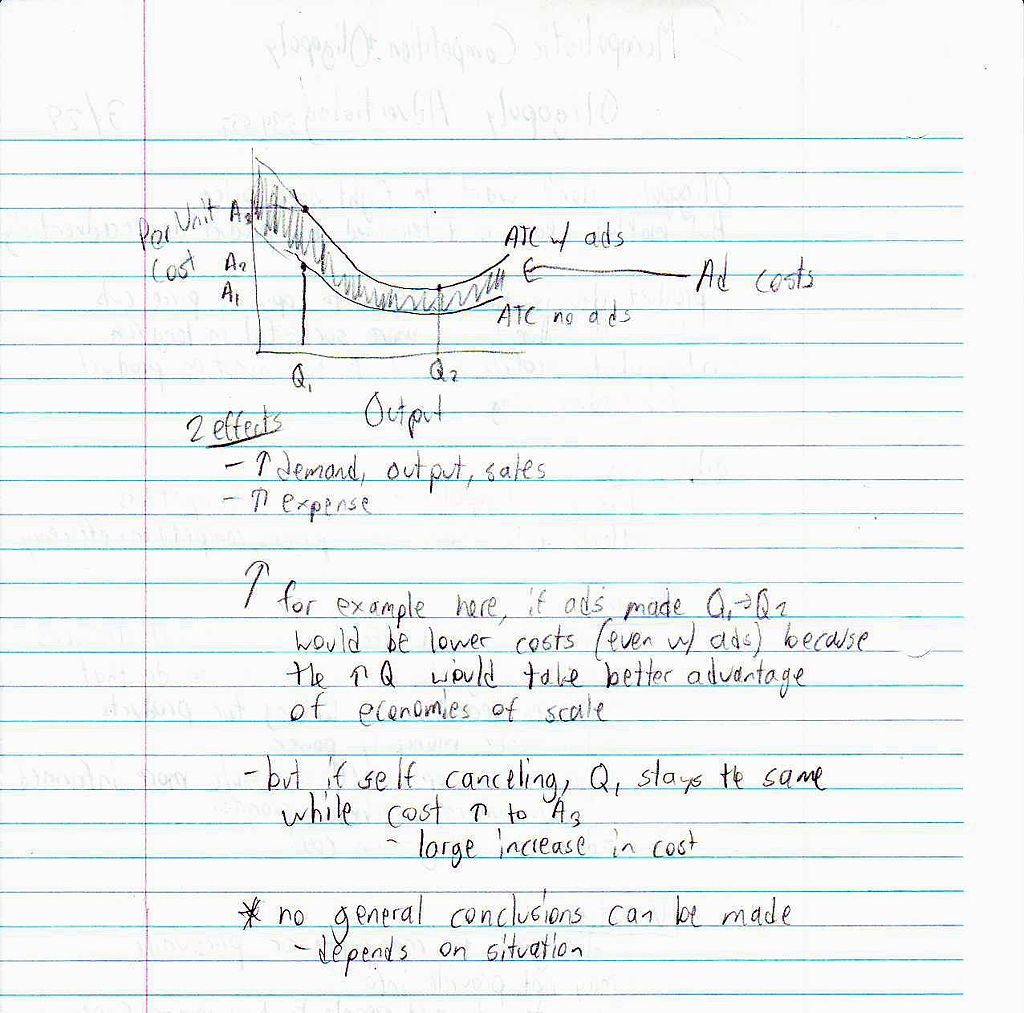 Per Unit
Cost
A3
A2
A1
ATC w/ ads
Ad costs
ATC no ads
Q1
Q2
Output
2 effects
- ↑ demand, output, sales
- ↑ expense
↑ for example here, if ads made Q1→Q2
would be lower costs (even w/ ads) because
the ↑ Q would take better advantage
of economies of scale
- but if self canceling, Q1 stays the same
while cost ↑ to A3
- large increase in cost
* no general conclusions can be made
- depends on situation